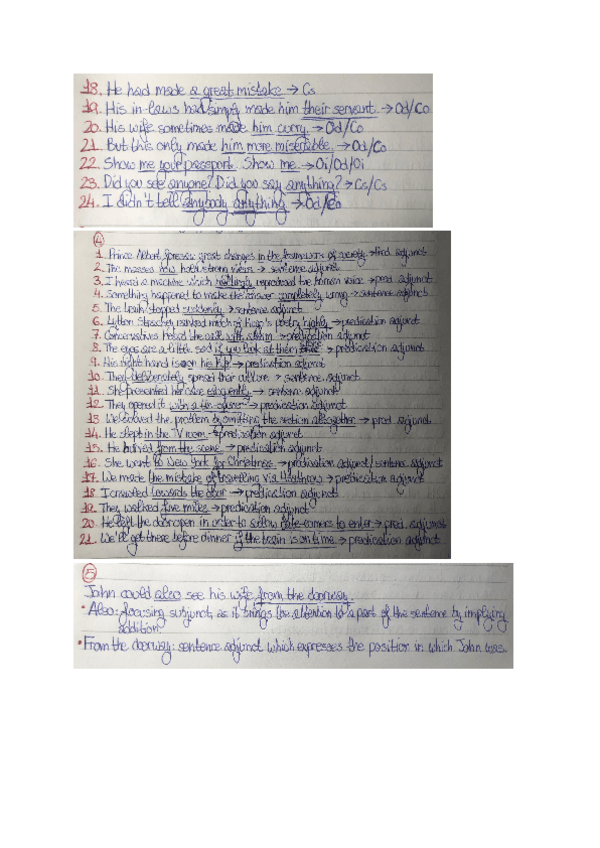 18. He had made a great mistake → Cs
19. His in-laws had simply made him their servant → Od/Co
20. His wife sometimes made him curry → Od/Co
21. But this only made him more miserable → Od/Co
22. Show me your passport. Show me → Oi/Od/Oi
23. Did you see anyone? Did you say anything? → Cs/Cs
24. I didn't tell anybody anything → Od/Co
4
1. Prince Albert foresaw great changes in the framework of society → Pred. adjunct
2. The masses now hold strong views → sentence adjunct
3. I heard a machine which recently reproduced the human voice → pred. adjunct
4. Something happened to make the answer completely wrong → sentence adjunct
5. The leak stopped suddenly → sentence adjunct
6. Lytton Strachey ranked much of Pope's poetry highly → predication adjunct
7. Conservatives hailed the with → predication adjunct
8. The eyes are a little sad if you look at them → predication adjunct
9. His right hand is on his hip → predication adjunct
10. They deliberately spread their culture → sentence adjunct
11. She presented her case eloquently → sentence adjunct
12. They opened it with a tin-opener → predication adjunct
13. We solved the problem by omitting the section altogether → pred. adjunct
14. He slept in the TV room → predication adjunct
15. He hurried from the scene → predication adjunct
16. She went to New York for Christmas → predication adjunct/sentence adjunct
17. We made the mistake of travelling via Heathrow → predication adjunct
18. I crawled towards the door → predication adjunct
19. They walked five miles → predication adjunct
20. He left the door open in order to allow late-comers to enter → pred. adjunct
21. We'll get there before dinner if the train is on time → predication adjunct
5
John could also see his wife from the doorway.
• Also: focusing subjunct, as it brings the attention to a part of the sentence by implying
addition.
• From the doorway: sentence adjunct which expresses the position in which John was.